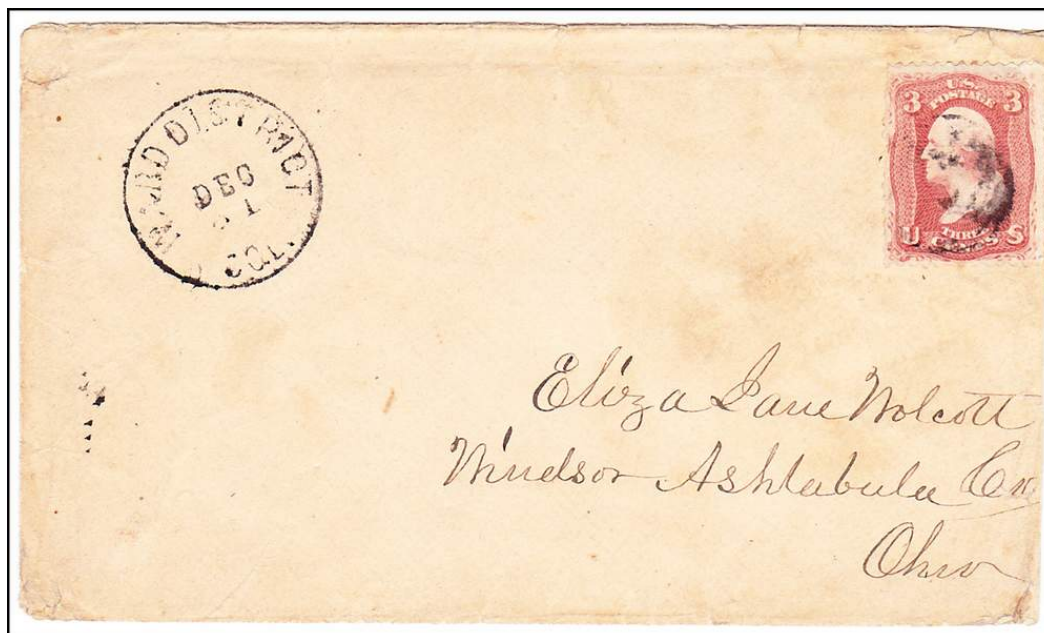 WARD DISTRICT
DEC
21
COL.
3 U.S. 3
POSTAGE
THREE
U CENTS S
Eliza Jane Wolcott
Windsor Ashtabula Co
Ohio